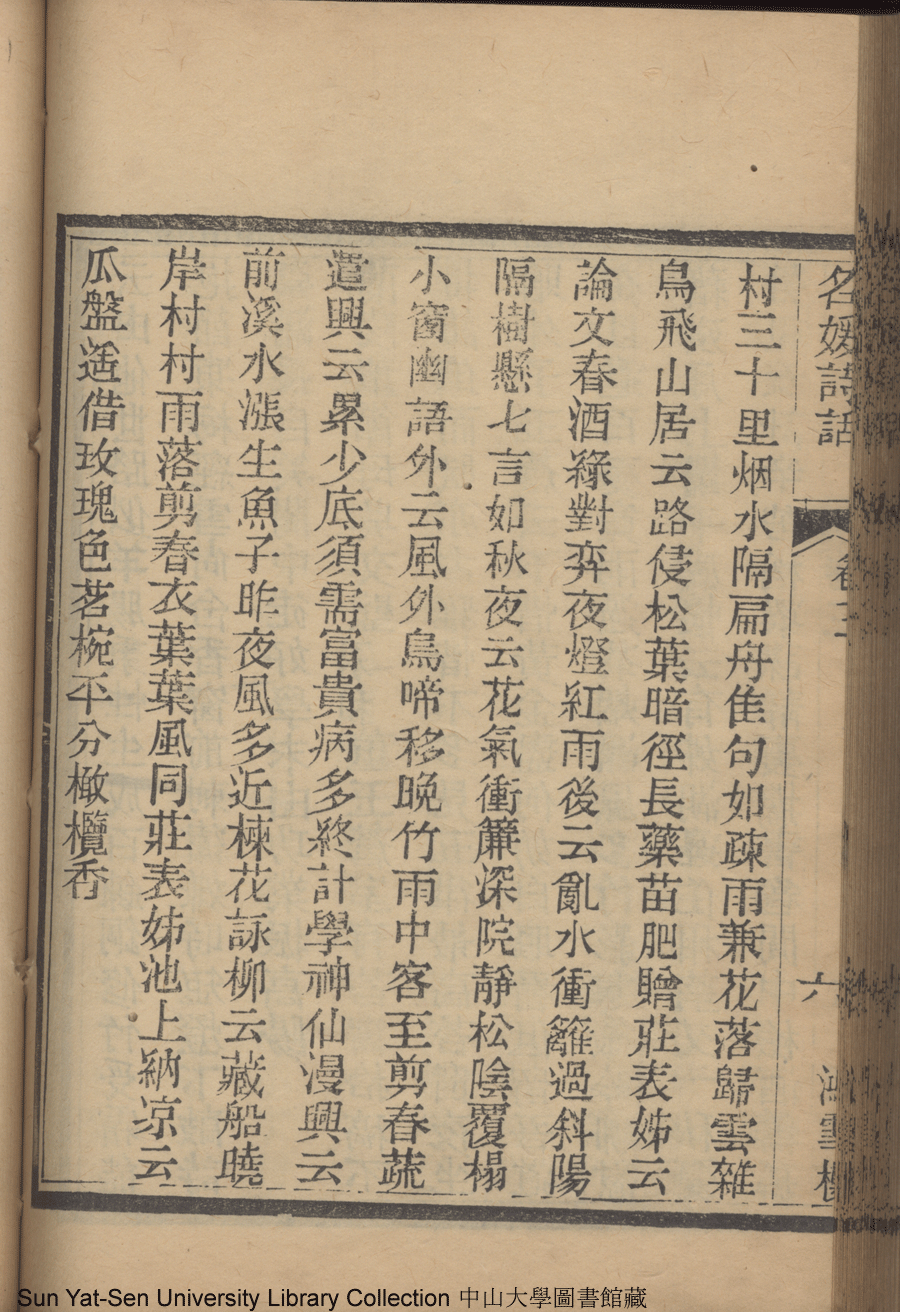 名媛詩話
六
村三十里烟水隔扁舟隹句如疎雨兼花落歸雲雜
鳥飛山居云路侵松葉暗徑長藥苗肥贈莊表姊云
論文春酒綠對弈夜燈紅雨後云亂水衝籬過斜陽
隔樹懸七言如秋夜云花氣衝簾深院靜松陰覆榻
小窗幽語外云風外鳥啼移晚竹雨中客至剪春蔬
遣興云累少底須需富貴病多終計學神仙漫興云
前溪水漲生魚子昨夜風多近楝花詠柳云藏船曉
岸村村雨落剪春衣葉葉風同莊表姊池上納凉云
瓜盤遥借玫瑰色茗椀平分橄欖香
Sun Yat-Sen University Library Collection 中山大學圖書館藏